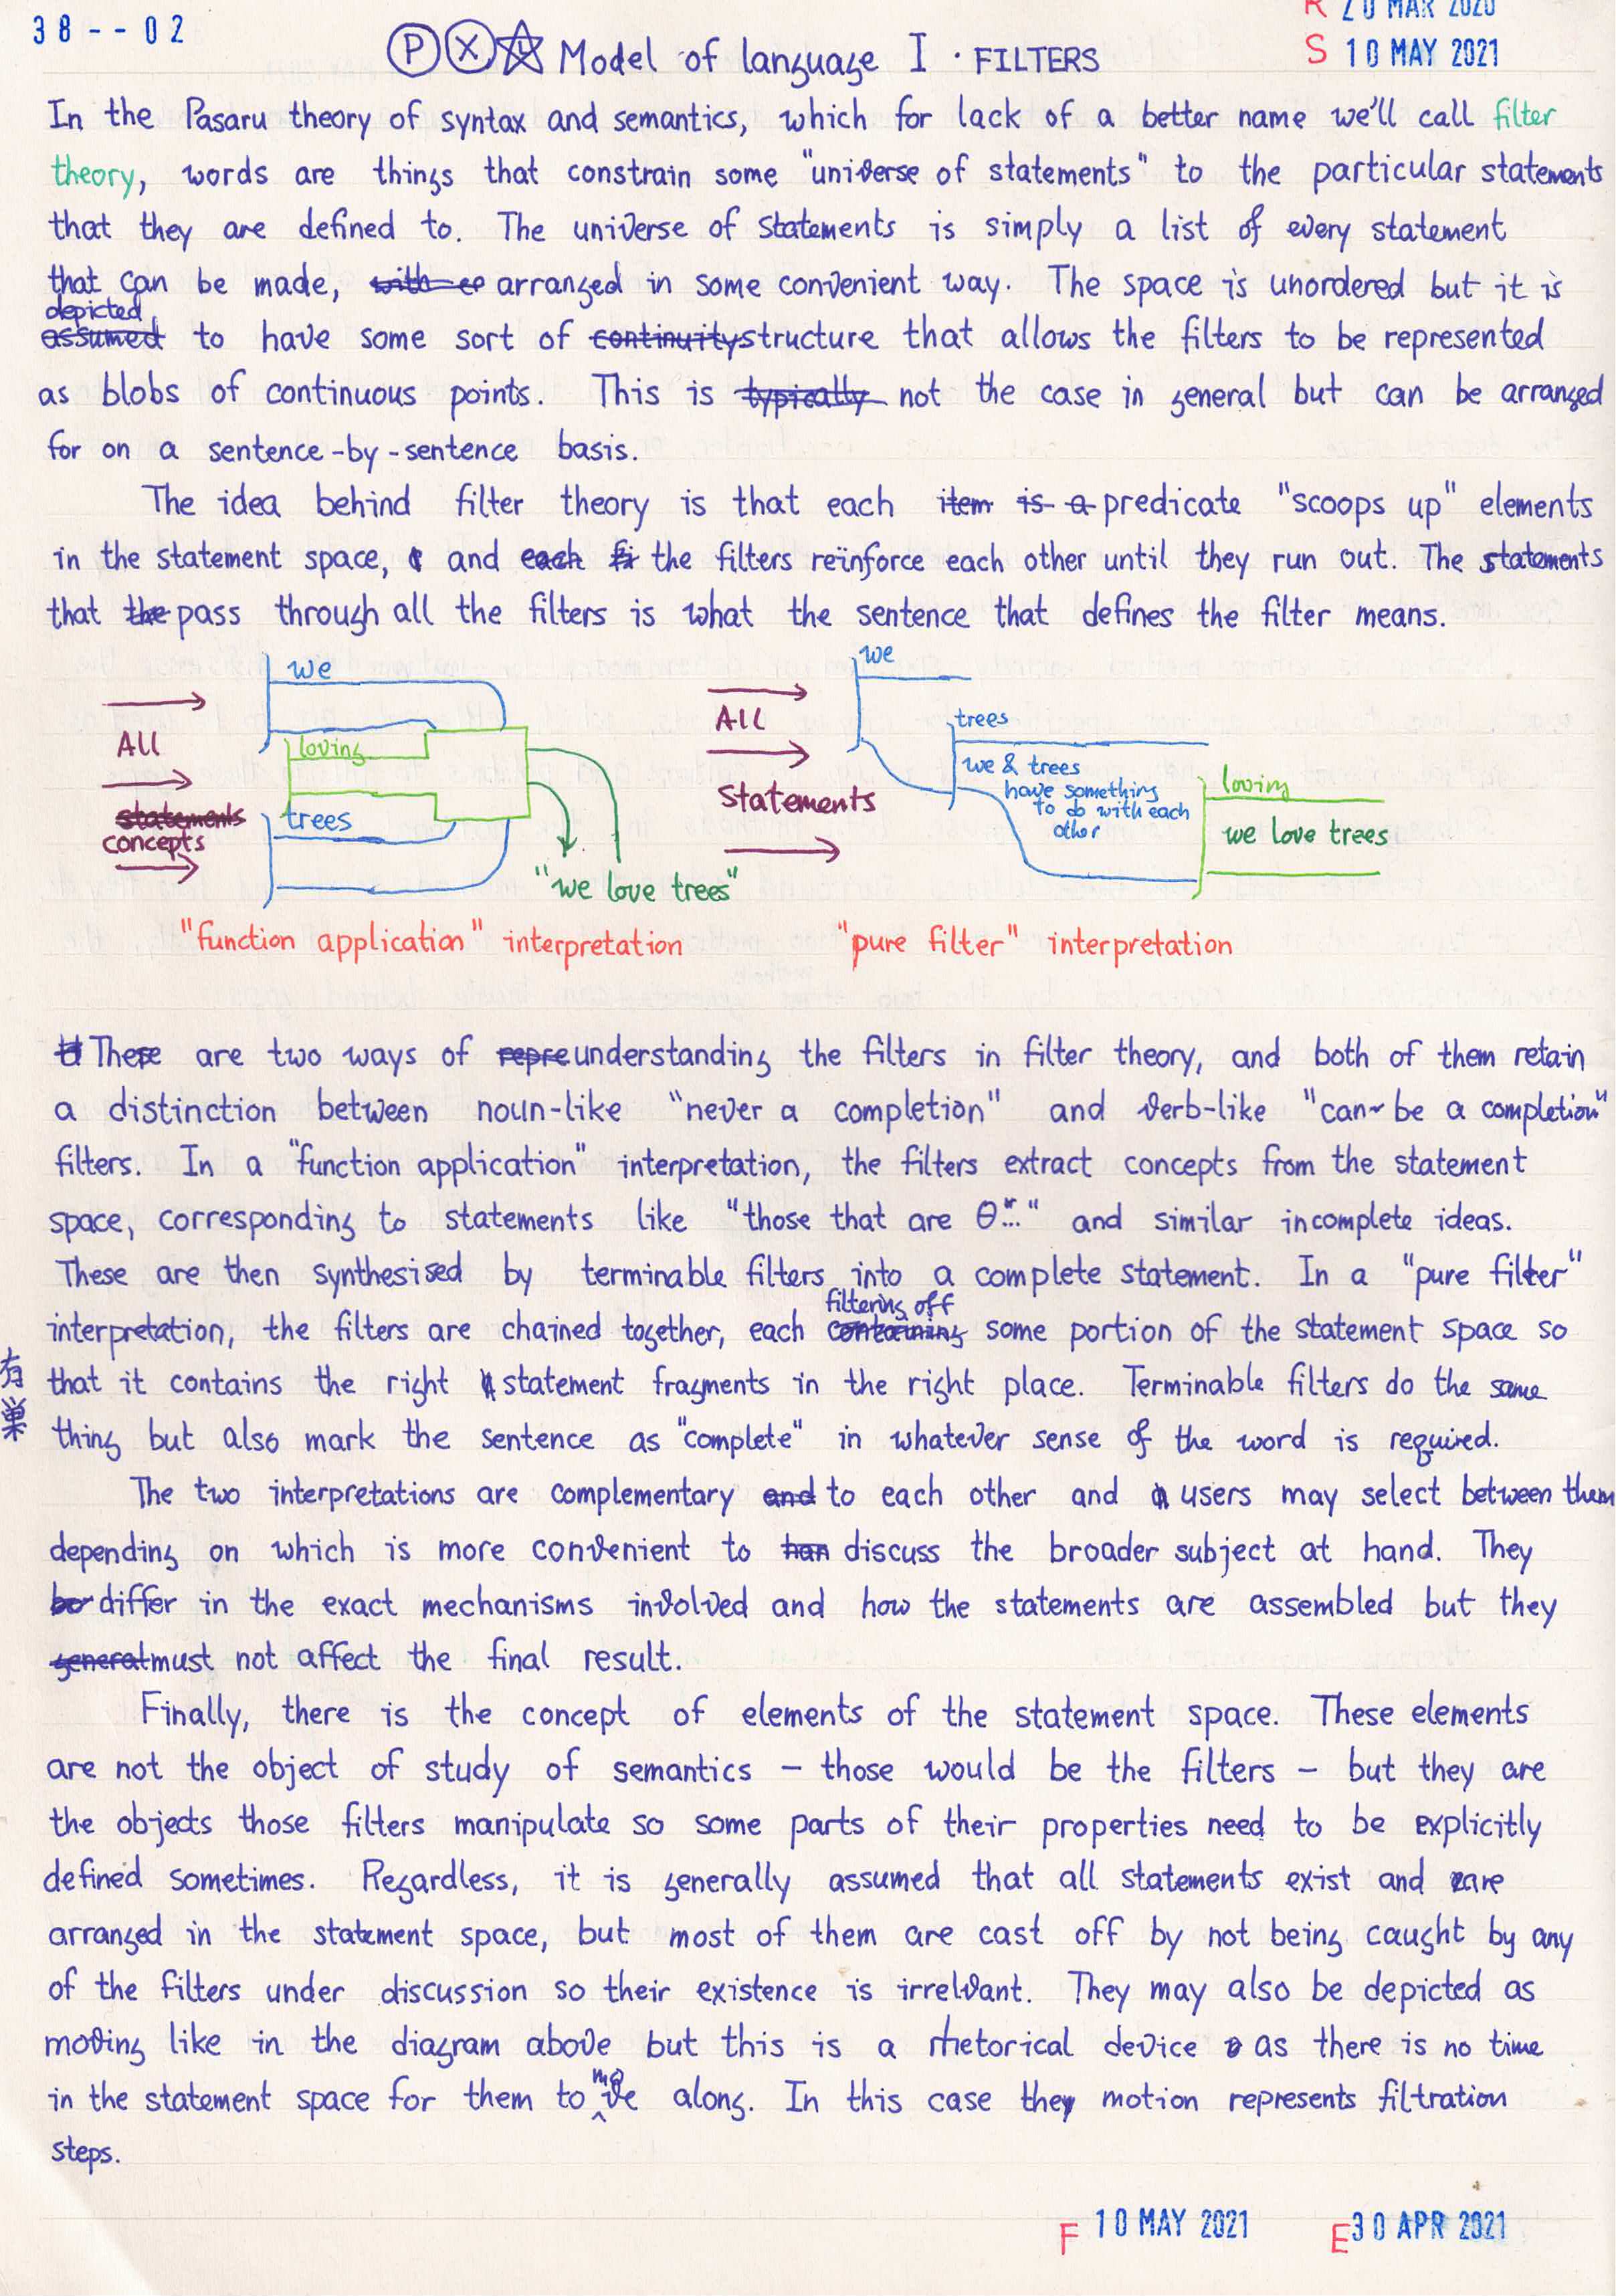 38--02
R 20 MAR 2020
S 10 MAY 2021
P X Model of language I · FILTERS
In the Pasaru theory of syntax and semantics, which for lack of a better name we'll call filter
theory, words are things that constrain some "universe of statements" to the particular statements
that they are defined to. The universe of statements is simply a list of every statement
that can be made, with co arranged in some convenient way. The space is unordered but it is
depicted
assumed to have some sort of continuity structure that allows the filters to be represented
as blobs of continuous points. This is typically not the case in general but can be arranged
for on a sentence-by-sentence basis.
The idea behind filter theory is that each item is a predicate "scoops up" elements
in the statement space, and each fi the filters reïnforce each other until they run out. The statements
that the pass through all the filters is what the sentence that defines the filter means.
we
All
loving
statements
concepts
trees
"we love trees"
"function application" interpretation
we
All
Statements
trees
we & trees
have something
to do with each
other
loving
we love trees
"pure filter" interpretation
There are two ways of repre understanding the filters in filter theory, and both of them retain
a distinction between noun-like "never a completion" and verb-like "can be a completion"
filters. In a "function application" interpretation, the filters extract concepts from the statement
space, corresponding to statements like "those that are θ..." and similar incomplete ideas.
These are then synthesised by terminable filters into a complete statement. In a "pure filter"
filtering off
interpretation, the filters are chained together, each containing some portion of the statement space so
that it contains the right statement fragments in the right place. Terminable filters do the same
thing but also mark the sentence as "complete" in whatever sense of the word is required.
有巢
The two interpretations are complementary and to each other and users may select between them
depending on which is more convenient to han discuss the broader subject at hand. They
bo differ in the exact mechanisms involved and how the statements are assembled but they
general must not affect the final result.
Finally, there is the concept of elements of the statement space. These elements
are not the object of study of semantics – those would be the filters – but they are
the objects those filters manipulate so some parts of their properties need to be explicitly
defined sometimes. Regardless, it is generally assumed that all statements exist and are
arranged in the statement space, but most of them are cast off by not being caught by any
of the filters under discussion so their existence is irrelvant. They may also be depicted as
moving like in the diagram above but this is a rhetorical device as there is no time
in the statement space for them to move along. In this case they motion represents filtration
steps.
F 10 MAY 2021
E 30 APR 2021